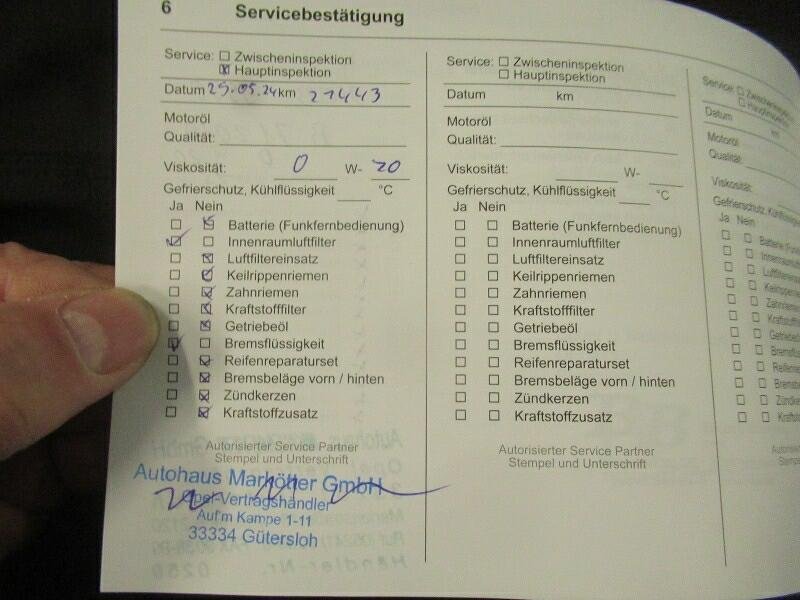 6 Servicebestätigung
Service: Zwischeninspektion
Hauptinspektion
Datum 29.05.24 km 21443
Motoröl
Qualität:
Viskosität: 0 W- 20
Gefrierschutz, Kühlflüssigkeit °C
Ja Nein
Batterie (Funkfernbedienung)
Innenraumluftfilter
Luftfiltereinsatz
Keilrippenriemen
Zahnriemen
Kraftstofffilter
Getriebeöl
Bremsflüssigkeit
Reifenreparaturset
Bremsbeläge vorn / hinten
Zündkerzen
Kraftstoffzusatz
Autorisierter Service Partner
Stempel und Unterschrift
Autohaus Markötter GmbH
Opel-Vertragshändler
Auf'm Kampe 1-11
33334 Gütersloh
Service: Zwischeninspektion
Hauptinspektion
Datum km
Motoröl
Qualität:
Viskosität: W-
Gefrierschutz, Kühlflüssigkeit °C
Ja Nein
Batterie (Funkfernbedienung)
Innenraumluftfilter
Luftfiltereinsatz
Keilrippenriemen
Zahnriemen
Kraftstofffilter
Getriebeöl
Bremsflüssigkeit
Reifenreparaturset
Bremsbeläge vorn / hinten
Zündkerzen
Kraftstoffzusatz
Autorisierter Service Partner
Stempel und Unterschrift
Service:
Datum km
Motoröl
Qualität:
Viskosität:
Gefrierschutz,
Ja Nein